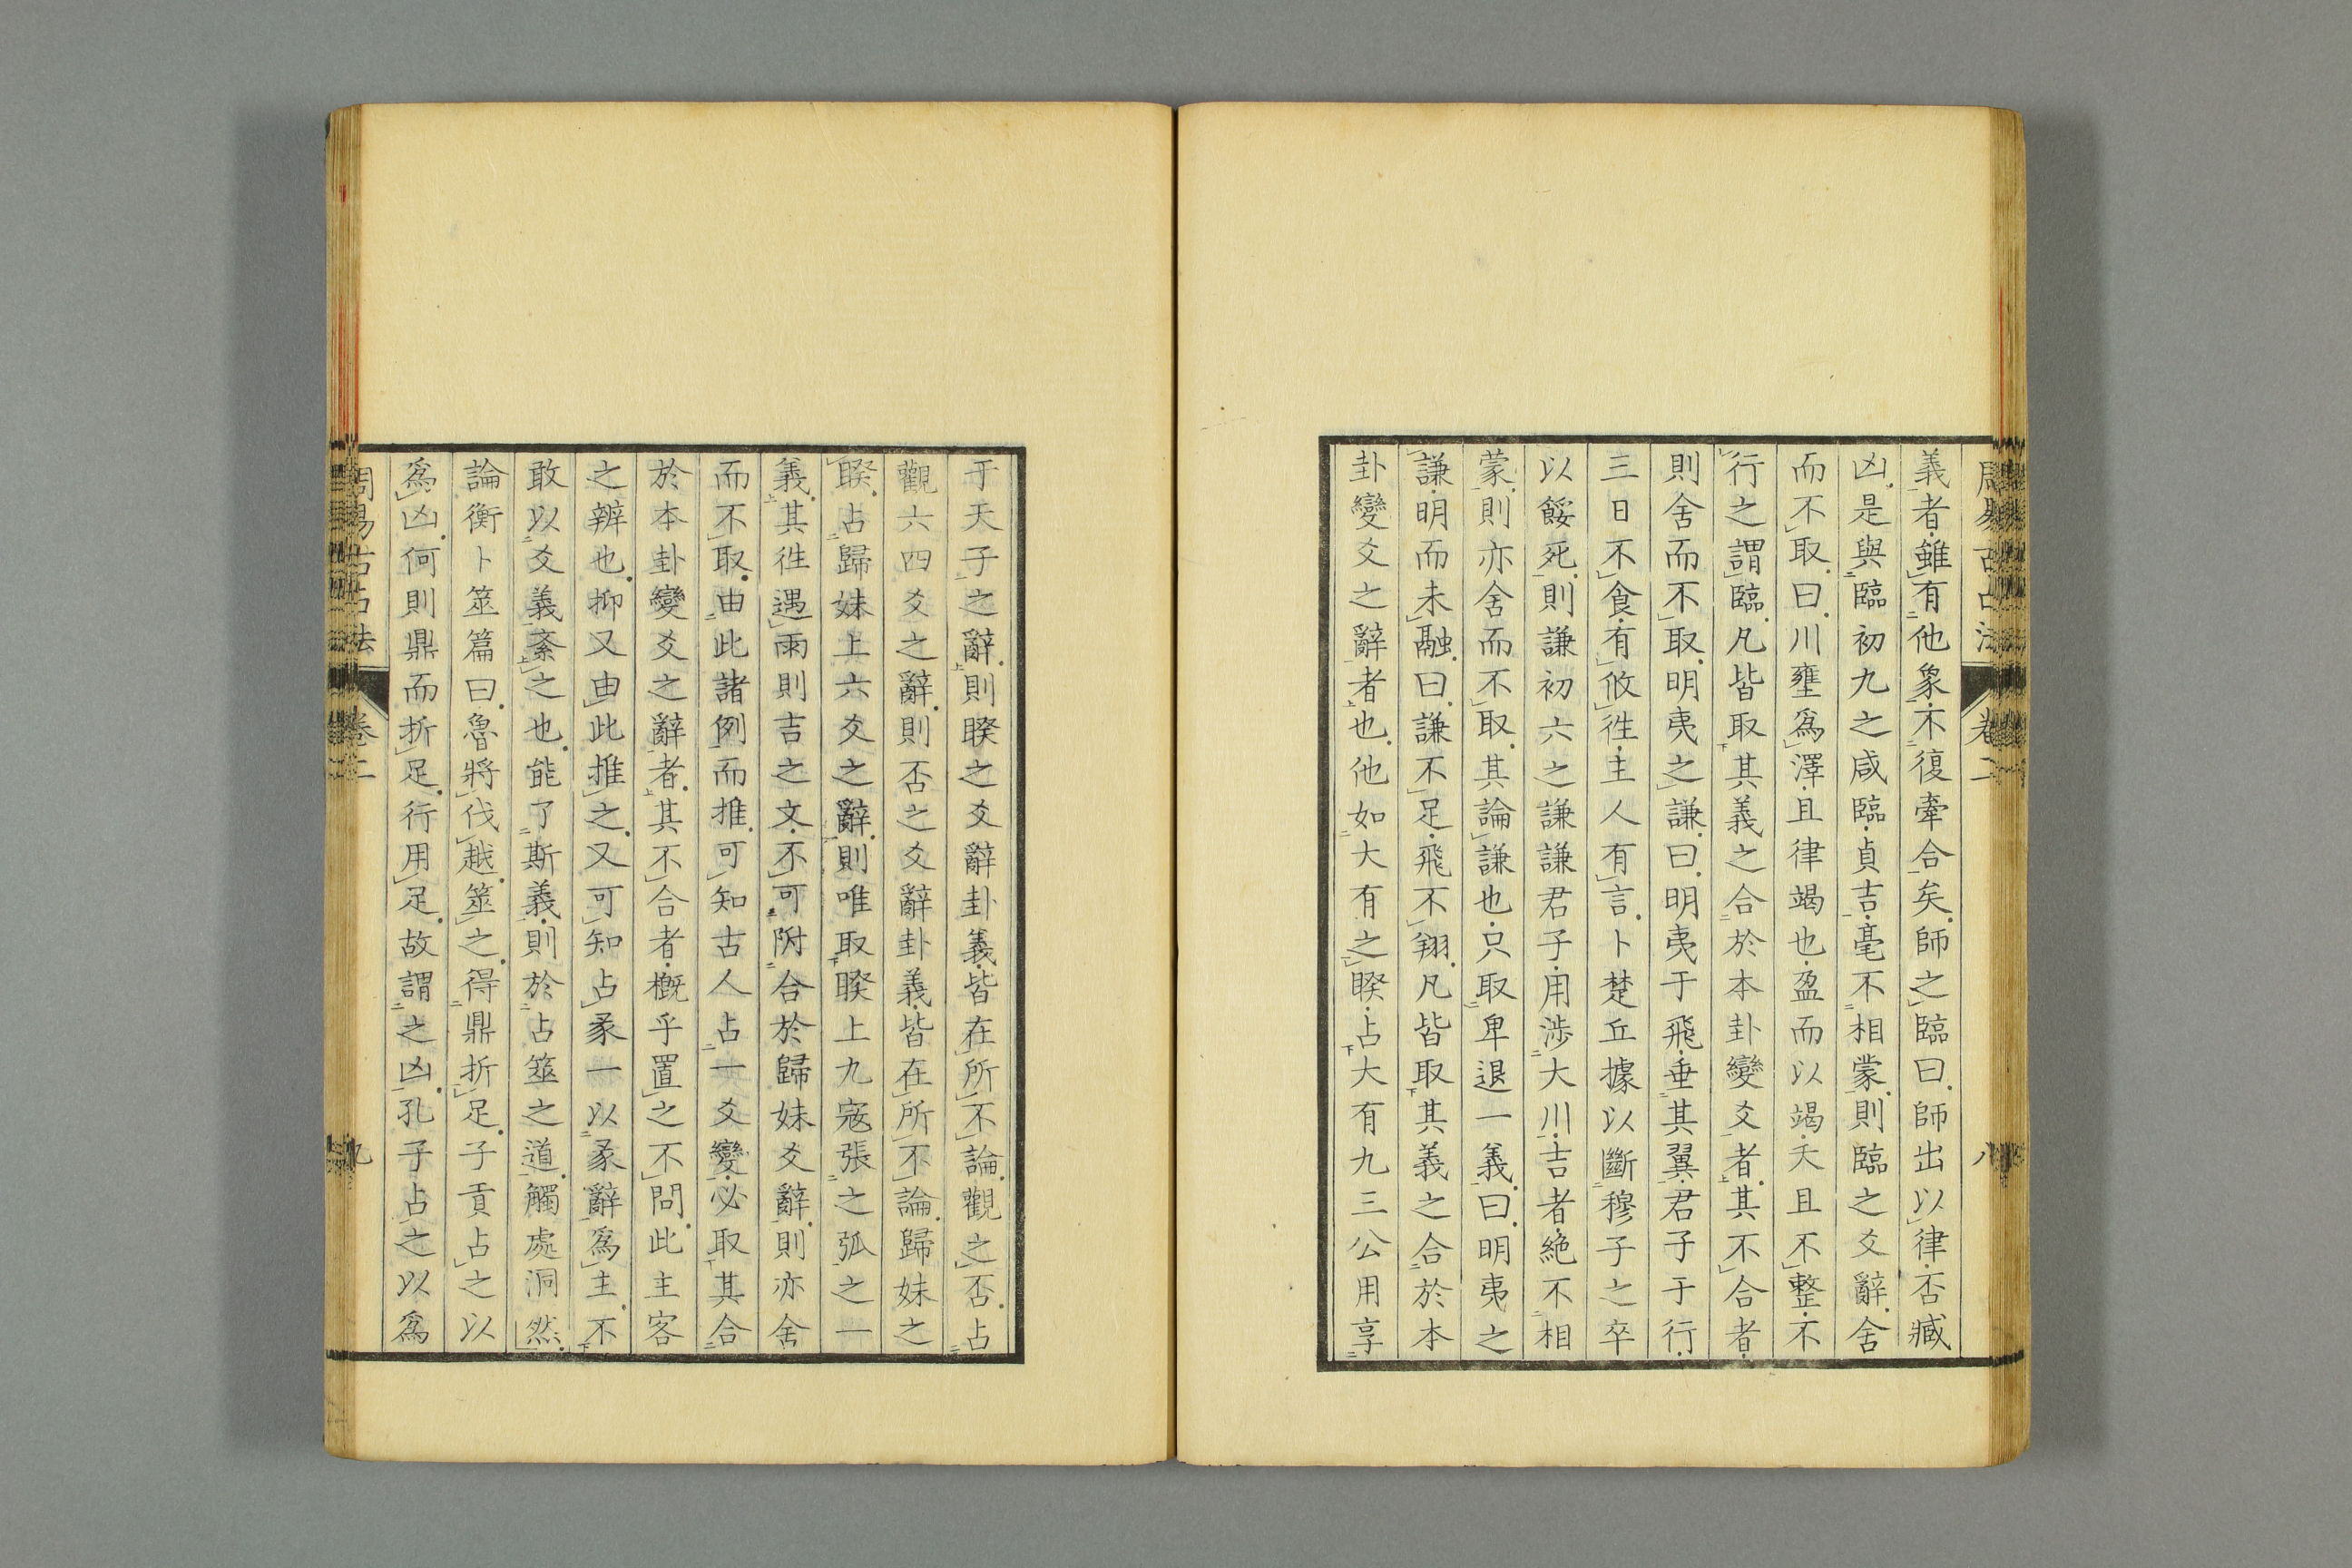 周易古占法 卷二 八
義者雖有他象不復牽合矣師之臨曰師出以律否臧
凶是與臨初九之咸臨貞吉毫不相蒙則臨之爻辭舍
而不取曰川壅爲澤且律竭也盈而以竭夭且不整不
行之謂臨凡皆取其義之合於本卦變爻者其不合者
則舍而不取明夷之謙曰明夷于飛垂其翼君子于行
三日不食有攸徃主人有言卜楚丘據以斷穆子之卒
以餒死則謙初六之謙謙君子用涉大川吉者絶不相
蒙則亦舍而不取其論謙也只取卑退一義曰明夷之
謙明而未融曰謙不足飛不翔凡皆取其義之合於本
卦變爻之辭者也他如大有之睽占大有九三公用享
于天子之辭則睽之爻辭卦義皆在所不論觀之否占
觀六四爻之辭則否之爻辭卦義皆在所不論歸妹之
睽占歸妹上六爻之辭則唯取睽上九寇張之弧之一
義其徃遇雨則吉之文不可附合於歸妹爻辭則亦舍
而不取由此諸例而推可知古人占一爻變必取其合
於本卦變爻之辭者其不合者概乎置之不問此主客
之辨也抑又由此推之又可知占彖一以彖辭爲主不
敢以爻義紊之也能了斯義則於占筮之道觸處洞然
論衡卜筮篇曰魯將伐越筮之得鼎折足子貢占之以
爲凶何則鼎而折足行用足故謂之凶孔子占之以爲
周易古占法 卷二 九